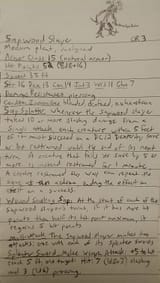 Sapwood Slayer CR 3
Medium plant, unaligned
Armor Class 15 (natural armor)
Hit Points 52 (8d8+16)
Speed 35 ft
Str 16 Dex 13 Con 14 Int 3 Wis 11 Cha 7
Damage piercing
Condition Immunities blinded, deafened, exhaustion
Sap Splatter Whenever the Sapwood Slayer
takes 10 or more slashing damage from a
single attack, each creature within 5 feet
of it must succeed on a DC 13 Dexterity save
or be restrained until the end of its next
turn. A creature that fails its save by 5 or
more is instead restrained for 1 minute.
A creature restrained this way can repeat the
save at the end of each turn, ending the effect on
itself on a success.
Wound Sealing Sap. At the start of each of the
Sapwood Slayer's turns, if it has more hit
points than half its hit point maximum, it
regains 5 hit points
Multiattack The Sapwood Slayer makes two
attacks, one with each of its Splinter Swords
Splinter Sword Melee Weapon Attack: +5 to hit
reach 5 ft one target Hit: 7 (1d8+3) slashing
and 3 (1d6) piercing.